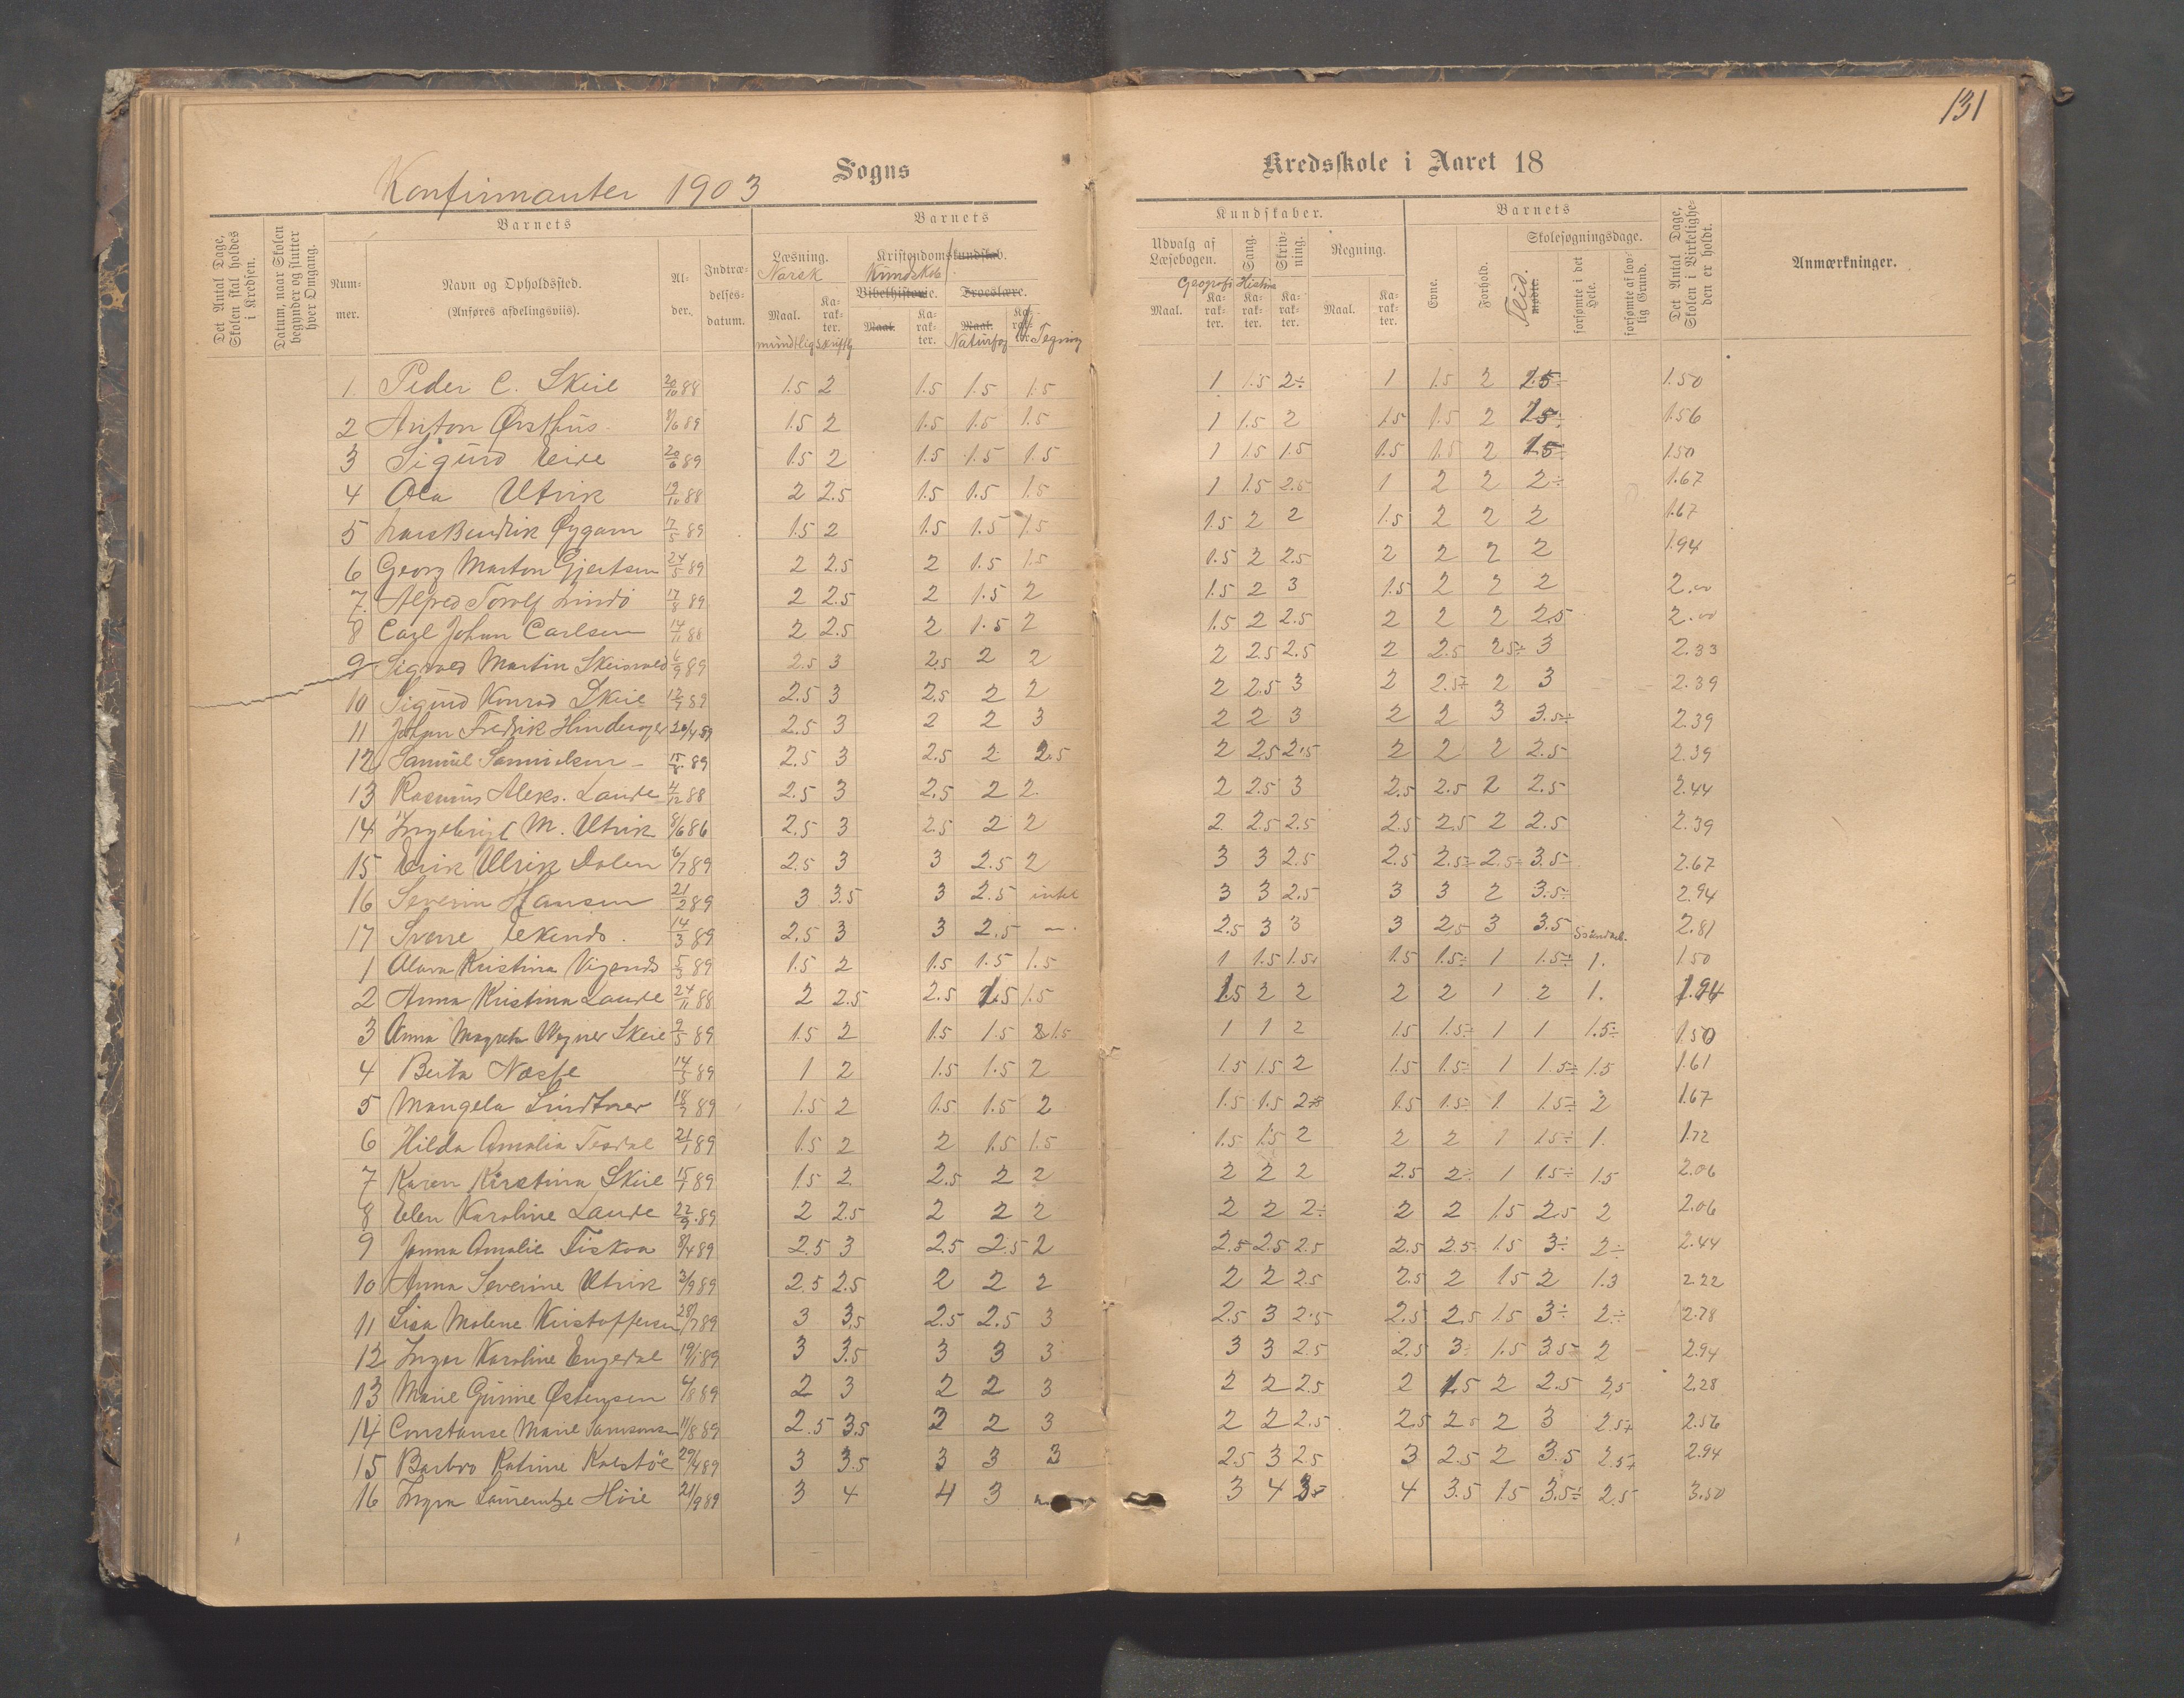 131
Konfirmanter 1903 Sogns Kredsskole i Aaret 18
Det Antal Dage, Skolen skal holdes i Kredsen.
Datum, naar Skolen begynder og slutter hver Omgang.
Barnets
Nummer.
Navn og Opholdssted.
(Anføres afdelingsviis).
Alder.
Indtrædelsesdatum.
Barnets
Læsning.
Norsk
Maal. Karakter.
mundtlig skriftlig
Kristendomskundskab.
Kundskab
Bibelhistorie. Troeslære.
Maal. Karakter. Maal. Karakter.
Naturfag Tegning
Kundskaber.
Udvalg af Læsebogen. Sang. Skrivning. Regning.
Geografi Historie
Maal. Karakter. Karakter. Karakter. Maal. Karakter.
Barnets
Evne. Forhold.
Skolesøgningsdage.
mødte. Flid. forsømte i det Hele. forsømte af lovlig Grund.
Det Antal Dage, Skolen i Virkeligheden er holdt.
Anmærkninger.
1. Peder C. Skeie 20/10 88 1.5 2 1.5 1.5 1.5 1 1.5 2÷ 1 1.5 2 2.5÷ 1.50
2 Anton Østhus 89 1.5 2 1.5 1.5 1.5 1 1.5 2 1.5 1.5 2 2.5÷ 1.56
3 Sigurd Eide 20/6 89 1.5 2 1.5 1.5 1.5 1 1.5 1.5 1.5 1.5 2 1.5 1.50
4 Ola Utvik 19/10 88 2 2.5 1.5 1.5 1.5 1 1.5 2.5 1 2 2 2÷ 1.67
5 Lars Bendrik Øygarn 17/5 89 1.5 2 1.5 1.5 1.5 1.5 2 2 1.5 2 2 2 1.67
6 Georg Marton Gjertsen 24/5 89 2 2.5 2 1.5 1.5 1.5 2 2.5 2 2 2 2 1.94
7. Alfred Torolf Lindö 17/8 89 2 2.5 2 1.5 2 1.5 2 3 1.5 2 2 2 2.00
8 Carl Johan Carlsen 14/11 88 2 2.5 2 1.5 2 1.5 2 2.5 2 2 2 2.5 2.00
9 Sigvald Martin Skeisvold 6/9 89 2.5 3 2.5 2 2 2 2.5 2.5 2 2.5 2.5÷ 3 2.33
10 Sigurd Konrad Skeie 12/7 89 2.5 3 2.5 2 2 2 2.5 3 2 2.5÷ 2 3 2.39
11 Johan Fredrik 20/4 89 2.5 3 2 2 3 2 2 3 2 2 3 3.5÷ 2.39
12 Samuel Samuelsen 15/8 89 2.5 3 2.5 2 2.5 2 2.5 2.5 2 2 2 2.5 2.39
13 Rasmus Aleks. Lande 4/12 88 2.5 3 2.5 2 2. 2 2.5 3 2.5 2.5 2 2.5 2.44
14 Ingebrigt M. Utvik 8/6 86 2.5 3 2.5 2 2 2. 2.5 2.5 2.5 2.5 2 2.5 2.39
15 Erik Ulrik Dalen 6/7 89 2.5 3 3 2.5 2 3 3 2.5 2.5 2.5÷ 2.5÷ 3.5 2.67
16 Severin Hansen 21/2 89 3 3.5 3 2.5 intet 3 3 2.5 3 3 2 3.5÷ 2.94
17 Sverre Ekends 14/3 89 2.5 3 3 2.5 — 2.5 3 3 3 2.5 3 3.5 2.81
1 Olava Kristina Vigends 5/3 89 1.5 2 1.5 1.5 1.5 1 1.5 1.5+ 1.5 1.5÷ 1 1.5÷ 1. 1.50
2 Anna Kristina Lande 24/11 88 2 2.5 2.5 1.5 1.5 1.5 2 2 2 2 1 2 1. 1.94
3 Anna Magreta Wegner Skeie 9/5 89 1.5 2 1.5 1.5 1.5 1 1 2 1.5 1.5÷ 1 1 1.5÷ 1.50
4 Berta Næsse 14/5 89 1 2 1.5 1.5 2 1.5 1.5 2 1.5 1.5÷ 1 1.5÷ 1.5 1.61
5 Mangela Lindtner 18/7 89 1.5 2 1.5 1.5 2 1.5 1.5 2 1.5 1.5÷ 1 1.5÷ 2 1.67
6 Hilda Amalia 21/7 89 1.5 2 2 1.5 1.5 1.5 1.5 2 2 2 1 1.5÷ 1. 1.72
7 Karen Kirstina Skeie 15/7 89 1.5 2 2.5 2 2 2 2 2 2.5 2÷ 1 1.5÷ 1.5 2.06
8 Elen Karoline Lande 22/9 89 2 2.5 2 2 2 2 2 2÷ 2 2 1.5 2.5 2 2.06
9 Janna Amalie Fiskaa 8/4 89 2.5 3 2.5 2.5 2 2.5 2.5 2.5 2.5 2.5 1.5 3÷ 2÷ 2.44
10 Anna Severine Utvik 3/9 89 2.5 2.5 2 2 2 2 2 2.5 2.5 2 1.5 2 1.3 2.22
11 Lisa Malene Kristoffersen 28/7 89 3 3.5 2.5 2.5 3 2.5 3 2.5 2.5 2.5 1.5 3÷ 2÷ 2.78
12 Ingar Karoline Engedal 19/1 89 3 3.5 3 3 3 3 3 2.5 2.5 3÷ 1.5 3.5÷ 2 2.94
13 Marie Gurine Østensen 6/8 89 2 3 2 2 3 2 2 2.5 2 1.5 2 2.5 2.5 2.28
14 Constanse Marie Samsonsen 11/8 89 2.5 3.5 3 2 3 2 2 2.5 2.5 2.5 2 3 2.5+ 2.56
15 Barbro Katrine Kalstöe 29/4 89 3 3.5 3 3 3 2.5 3 2.5 3 2.5 2 3.5 2.5+ 2.94
16 Ingra Laurentze Höie 21/9 89 3 4 4 3 3 4 3.5 4 3.5 1.5 3.5÷ 2.5 3.50